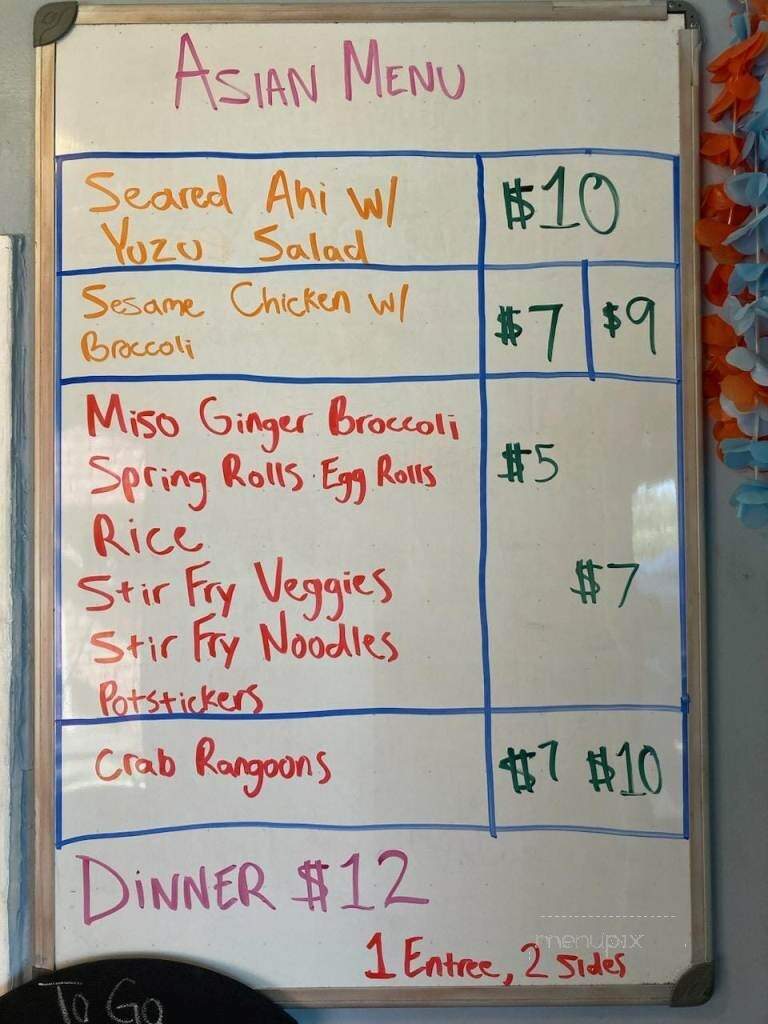 ASIAN MENU
Seared Ahi w/ $10
Yuzu Salad
Sesame Chicken w/ $7 $9
Broccoli
Miso Ginger Broccoli
Spring Rolls Egg Rolls $5
Rice
Stir Fry Veggies $7
Stir Fry Noodles
Potstickers
Crab Rangoons $7 $10
DINNER $12
menupix
1 Entree, 2 sides
To Go